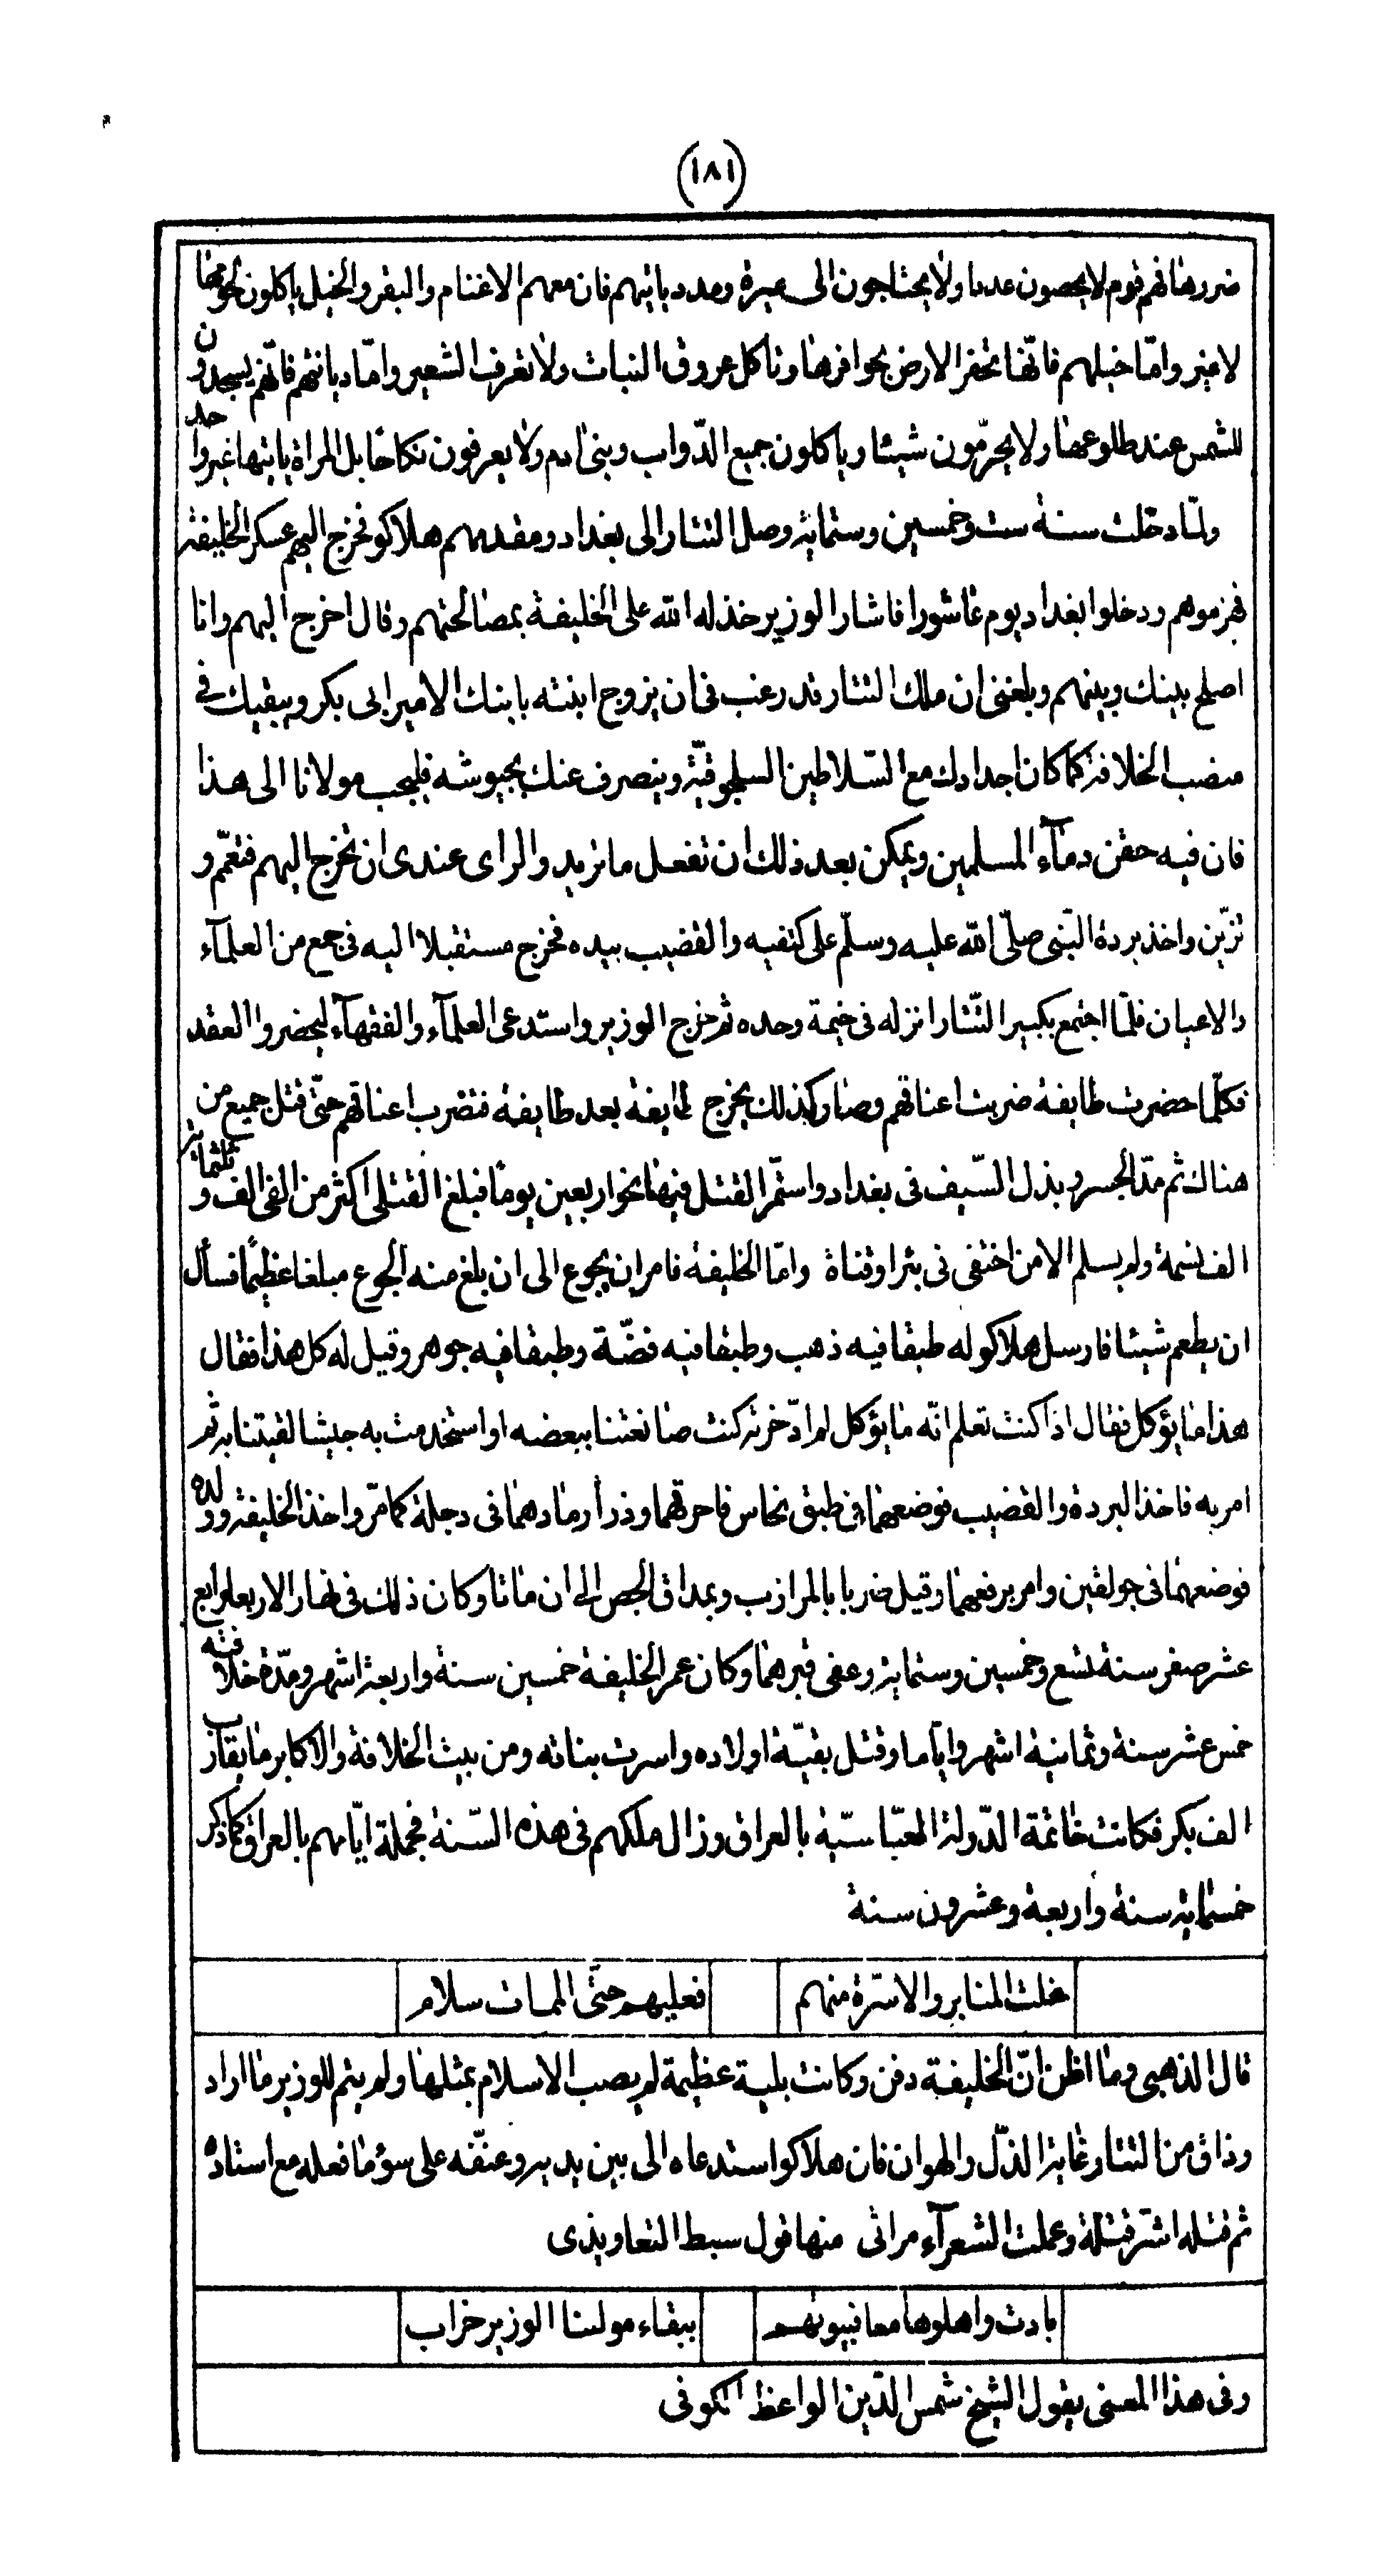 (١٨١)
ضررها فهم قوم لا يحصون عددا ولا يحتاجون الى ميرة ومدد ياتيهم فان معهم الاغنام والبقر والخيل ياكلون لحومها
لا غير واما خيلهم فانّها تحفر الارض بحوافرها وتاكل عروق النبات ولا تعرف الشعير وامّا ديانتهم فانّهم يسجدون
للشمس عند طلوعها ولا يحرّمون شيئا وياكلون جميع الدّواب وبنى ادم ولا يعرفون نكاحا بل المراة ياتيها غير واحد
ولمّا دخلت سنة ست وخمسين وستماية وصل التتار الى بغداد ومقدمهم هلاكو فخرج اليهم عسكر الخليفة
فهزموهم ودخلوا بغداد يوم عاشورا فاشار الوزير خذله الله على الخليفة بمصالحتهم وقال اخرج اليهم وانا
اصلح بينك وبينهم وبلغنى ان ملك التتار قد رغب فى ان يزوج ابنته بابنك الامير ابى بكر ويبقيك فى
منصب الخلافة كما كان اجدادك مع السّلاطين السلجوقيّة وينصرف عنك بجيوشه فليجب مولانا الى هذا
فان فيه حقن دمآء المسلمين ويمكن بعد ذلك ان تفعل ما تريد والراى عندى ان تخرج اليهم فتعمّم و
تزيّن واخذ بردة النّبى صلّى الله عليه وسلّم على كتفيه والقضيب بيده فخرج مستقبلا اليه فى جمع من العلمآء
والاعيان فلمّا اجتمع بكبير التّتار انزله فى خيمة وحده ثم خرج الوزير واستدعى العلمآء والفقهآء ليحضروا العقد
فكلّما حضرت طايفة ضربت اعناقهم وصار كذلك يخرج طايفة بعد طايفة فتضرب اعناقهم حتّى قتل جميع من
هناك ثم مدّ الجسر وبذل السّيف فى بغداد واستمّر القتل فيها نحوا ربعين يوماً فبلغ القتلى اكثر من الفى الف وثلثماية
الف نسمة ولم يسلم الا من اختفى فى بئر او قناة وامّا الخليفة فامر ان يجوع الى ان بلغ منه الجوع مبلغا عظيمًا فسأل
ان يطعم شيئا فارسل هلاكو له طبقا فيه ذهب وطبقا فيه فضّة وطبقا فيه جوهر وقيل له كل هذا فقال
هذا ما يؤكل فقال اذا كنت تعلم انّه ما يؤكل لم ادّخرته كنت صانعتنا ببعضه او استخدمت به جيشا لقيتنا به ثم
امر به فاخذ البردة والقضيب فوضعهما فى طبق نحاس فاحرقهما وذرأ رمادهما فى دجلة كما مرّ واخذ الخليفة وولده
فوضعهما فى جولقين وامر برفعهما وقيل ضربا بالمرازب وبمداق الجص الى ان ماتا وكان ذلك فى نهار الاربعا رابع
عشر صفر سنة تسع وخمسين وستماية وعفى قبرهما وكان عمر الخليفة خمسين سنة واربعة اشهر ومدّة خلافته
خمس عشر سنة وثمانية اشهر وايّاما وقتل بقيّة اولاده واسرت بناته ومن بيت الخلافة والاكابر ما يقارب
الف بكر فكانت خاتمة الدّولة العبّاسيّة بالعراق وزال ملكهم فى هذه السّنة فجملة ايّامهم بالعراق كما ذكر
خمسماية سنة واربعة وعشرون سنة
خلت المنابر والاسّرة منهم فعليهم حتّى الممات سلام
قال الذهبى وما اظن انّ الخليفة دفن وكانت بلية عظيمة لم يصب الاسلام بمثلها ولم يتم للوزير ما اراد
وذاق من التتار غاية الذلّ والهوان فان هلاكو استدعاه الى بين يديه وعنّفه على سوء ما فعله مع استاذه
ثم قتله اشرّ قتلة وعملت الشعرآء مراثى منها قول سبط التعاويذى
بادت واهلوها معا فبيوتهم ببقاء مولنا الوزير خراب
وفى هذا المعنى يقول الشيخ شمس الدّين الواعظ الكوفى